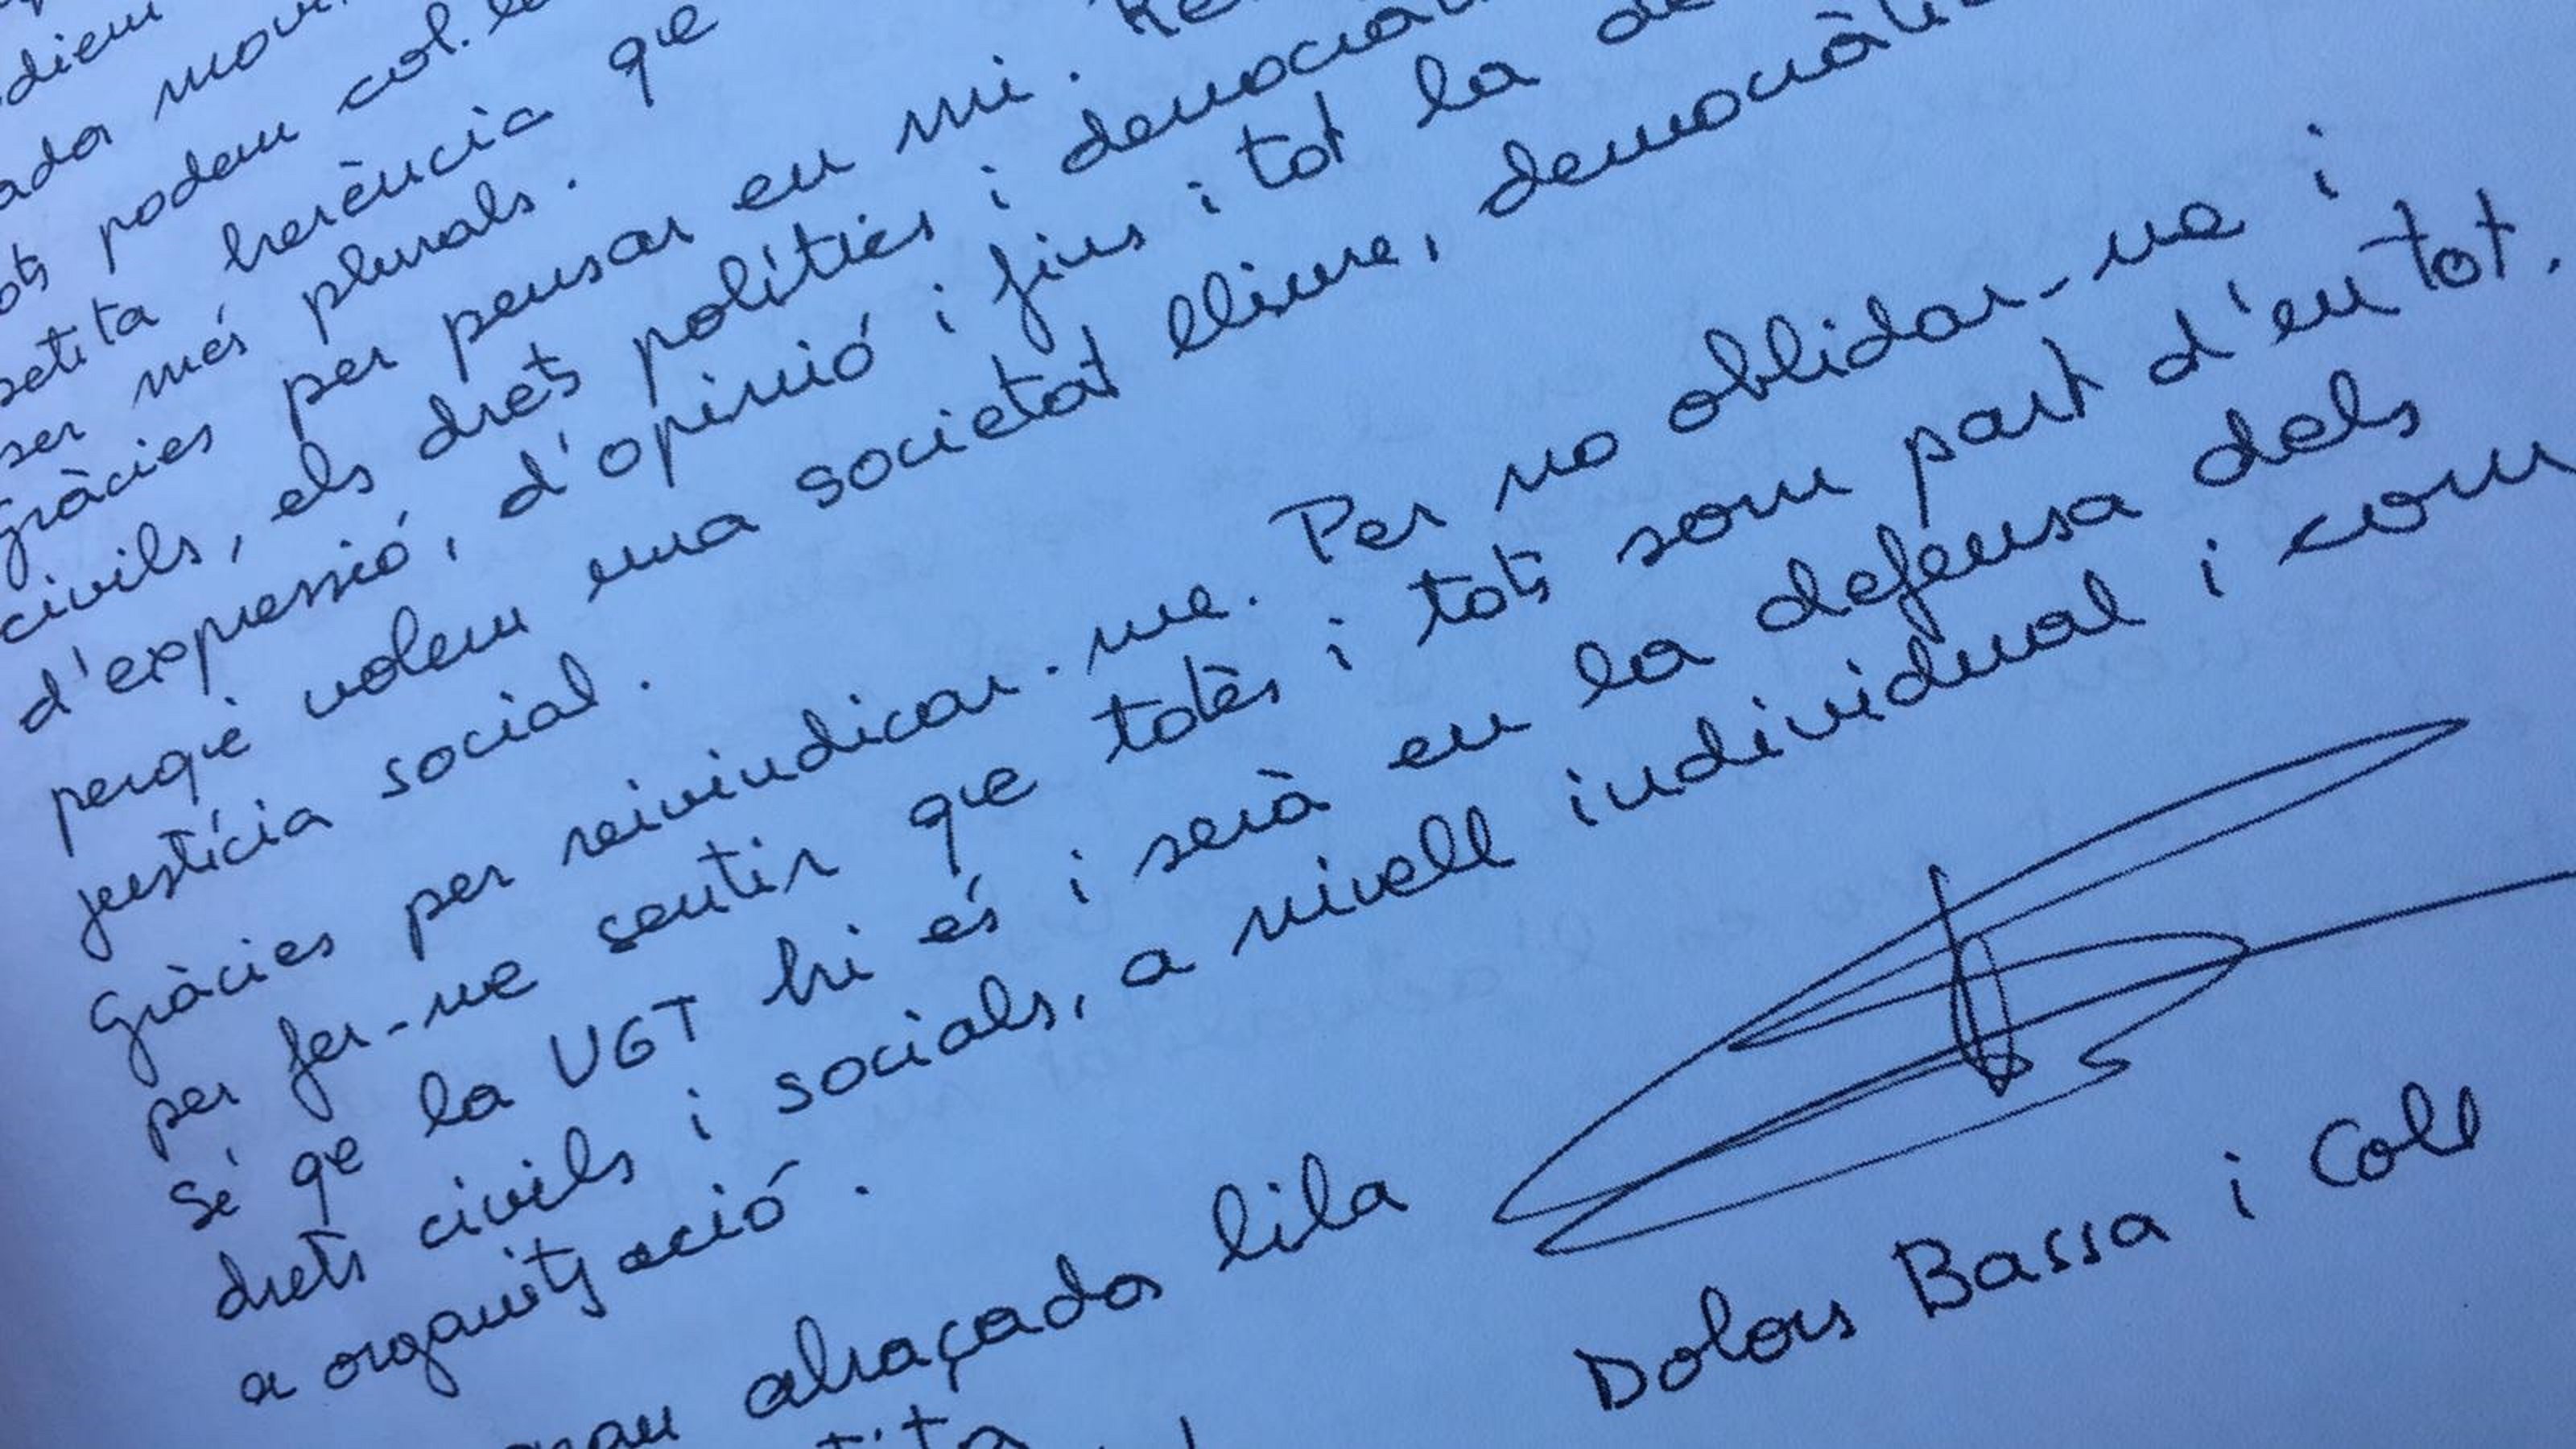 podem
petita herència que
ser més plurals.
Gràcies per pensar en mi.
civils, els drets polítics i
d'expressió, d'opinió i fins i tot la
perquè volem una societat lliure,
justícia social.
Gràcies per reivindicar-me. Per no oblidar-me i
per fer-me sentir que totes i tots som part d'en tot.
Sé que la UGT hi és i serà en la defensa dels
drets civils i socials, a nivell individual i com
a organització.
abraçada lila
Dolors Bassa i Coll